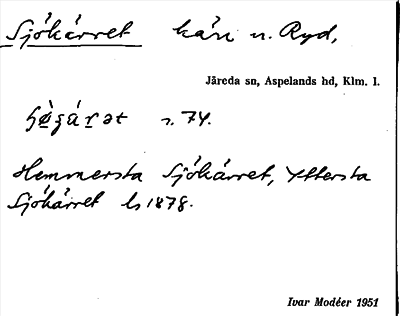 Sjökärret kärr n. Ryd,
Järeda sn, Aspelands hd, Klm. l.
s. 74.
Hemmersta Sjökärret, Yttersta
Sjökärret ls 1878.
Ivar Modéer 1951